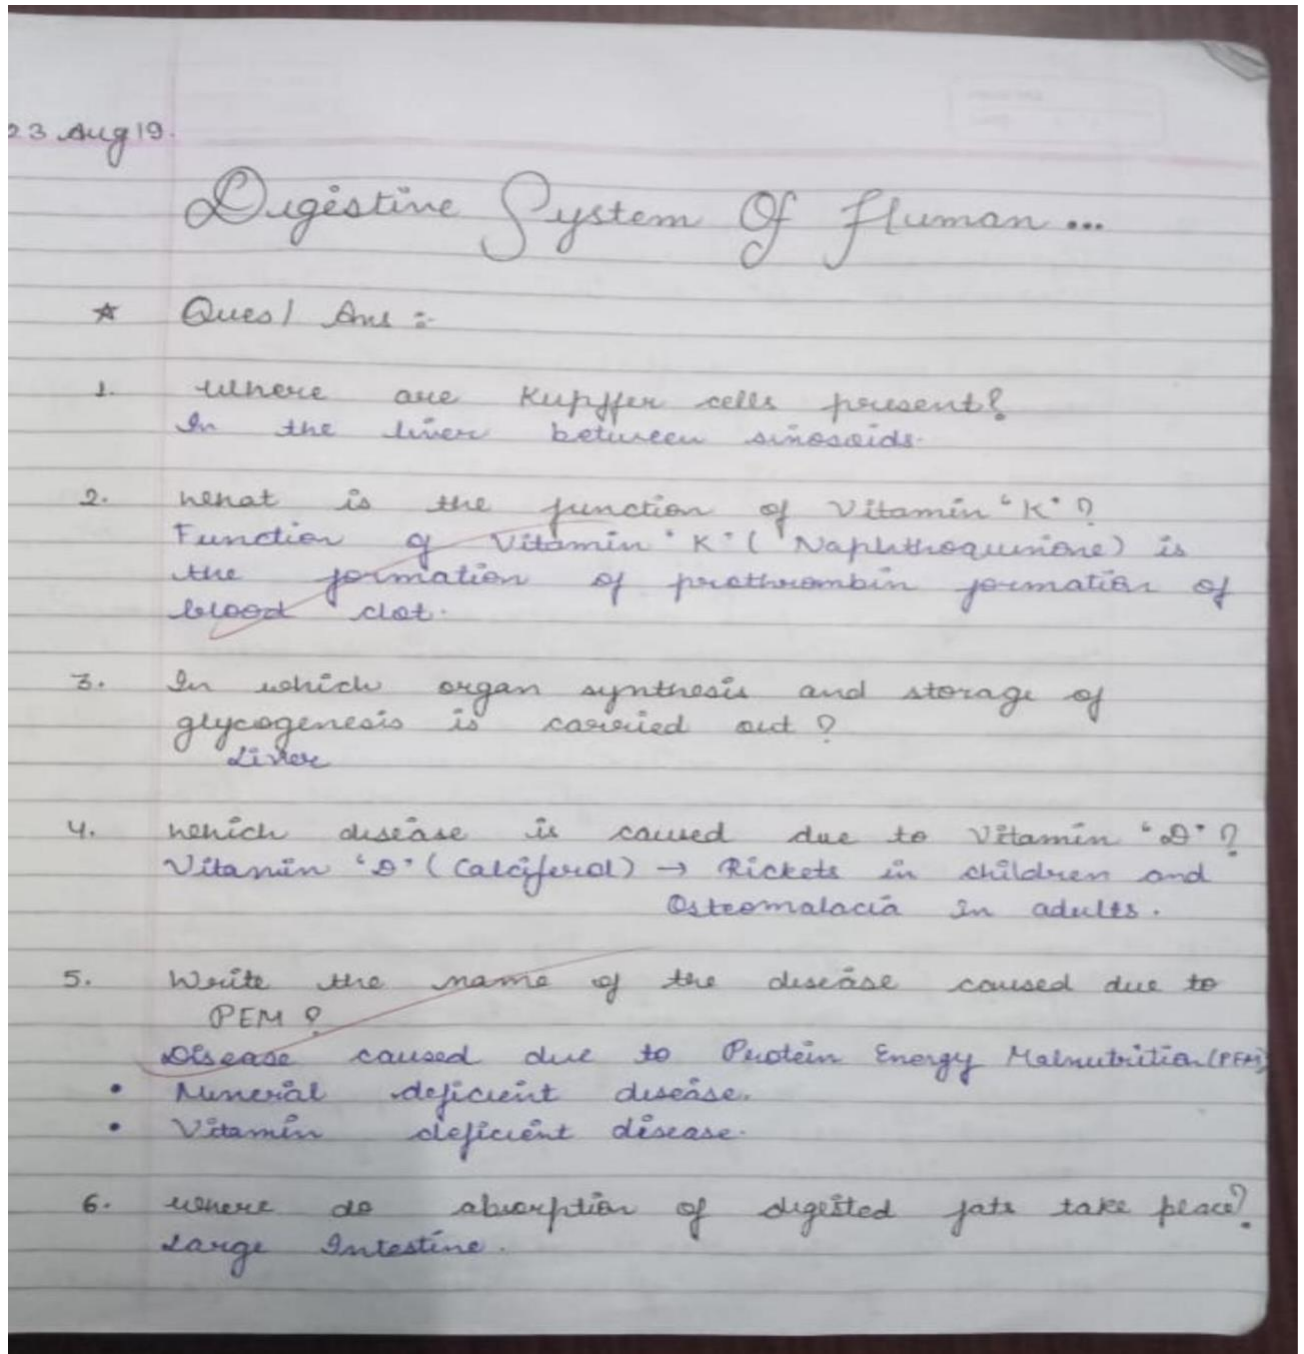 23 Aug 19.
Digestive System Of Human...
☆ Ques/ Ans :-
1. Where are Kupffer cells present?
In the liver between sinosoids.
2. What is the function of Vitamin "K"?
Function of Vitamin "K" (Naphthoquinone) is
the formation of prothrombin formation of
blood clot.
3. In which organ synthesis and storage of
glycogenesis is carried out?
Liver
4. Which disease is caused due to Vitamin "D"?
Vitamin "D" (Calciferol) → Rickets in children and
Osteomalacia in adults.
5. Write the name of the disease caused due to
PEM?
Disease caused due to Protein Energy Malnutrition (PEM)
• Mineral deficient disease.
• Vitamin deficient disease.
6. Where do absorption of digested fats take place?
Large Intestine.